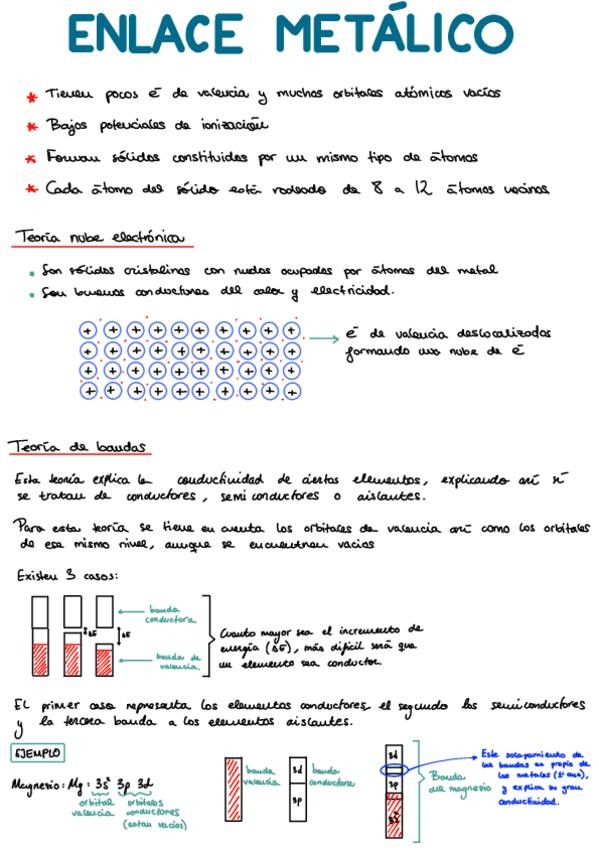 ENLACE METÁLICO
* Tienen pocos ē de valencia y muchos orbitales atómicos vacíos
* Bajos potenciales de ionización
* Forman sólidos constituidos por un mismo tipo de átomos
* Cada átomo del sólido está rodeado de 8 a 12 átomos vecinos
Teoría nube electrónica
• Son sólidos cristalinos con nudos ocupados por átomos del metal
• Son buenos conductores del calor y electricidad.
+ + + + + + + + + +
+ + + + + + + + + +
+ + + + + + + + + +
+ + + + + + + + + +
ē de valencia deslocalizados
formando una nube de ē
Teoría de bandas
Esta teoría explica la conductividad de ciertos elementos, explicando así si
se tratan de conductores, semiconductores o aislantes.
Para esta teoría se tiene en cuenta los orbitales de valencia así como los orbitales
de ese mismo nivel, aunque se encuentren vacíos
Existen 3 casos:
ΔE
ΔE
banda
conductora
banda de
valencia
Cuanto mayor sea el incremento de
energía (ΔE), más difícil será que
un elemento sea conductor.
El primer caso representa los elementos conductores, el segundo los semiconductores
y la tercera banda a los elementos aislantes.
EJEMPLO
Magnesio: Mg: 3s² 3p 3d
orbital
valencia
orbitales
conductores
(están vacíos)
banda
valencia
3d
3p
banda
conductora
3d
3p
3s²
Banda
del magnesio
Este solapamiento de
las bandas es propio de
los metales (1º caso),
y explica su gran
conductividad.